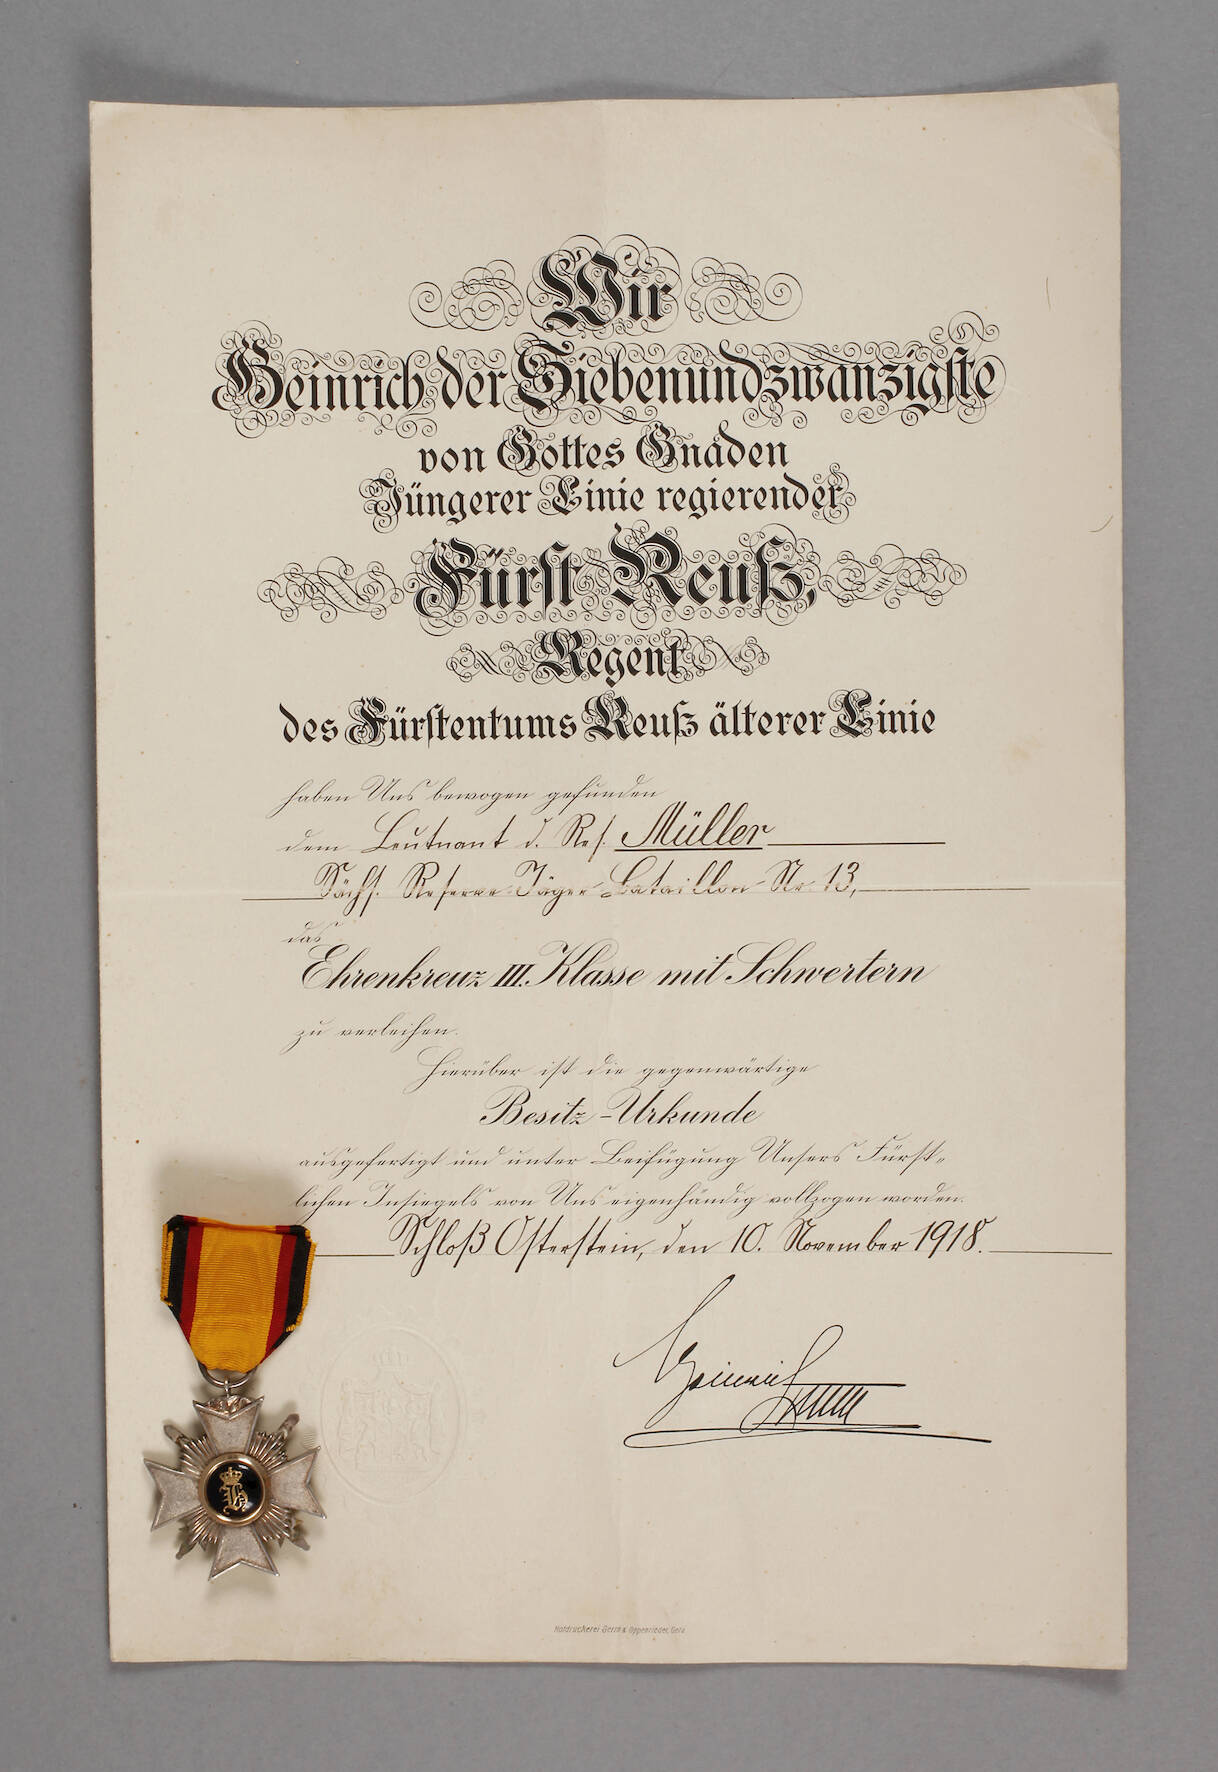 Wir
Heinrich der Siebenundzwanzigste
von Gottes Gnaden
Jüngerer Linie regierender
Fürst Reuß,
Regent
des Fürstentums Reuß älterer Linie
haben Uns bewogen gefunden
dem Leutnant d. Res. Müller
Sächs. Reserve-Jäger-Bataillon Nr 13,
das
Ehrenkreuz III. Klasse mit Schwertern
zu verleihen.
Hierüber ist die gegenwärtige
Besitz-Urkunde
ausgefertigt und unter Beifügung Unsers Fürst-
lichen Insiegels von Uns eigenhändig vollzogen worden.
Schloß Osterstein, den 10. November 1918.
Heinrich XXVII
Hofdruckerei Oppenrieder, Gera